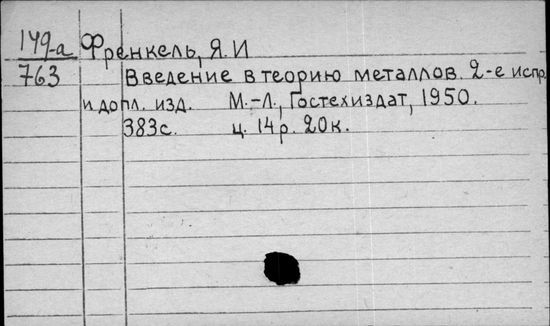 149-а Френкель, Я. И
763 Введение в теорию металлов. 2-е испр.
и доп. изд. М.-Л., Гостехиздат, 1950.
383с. ц. 14р. 20к.